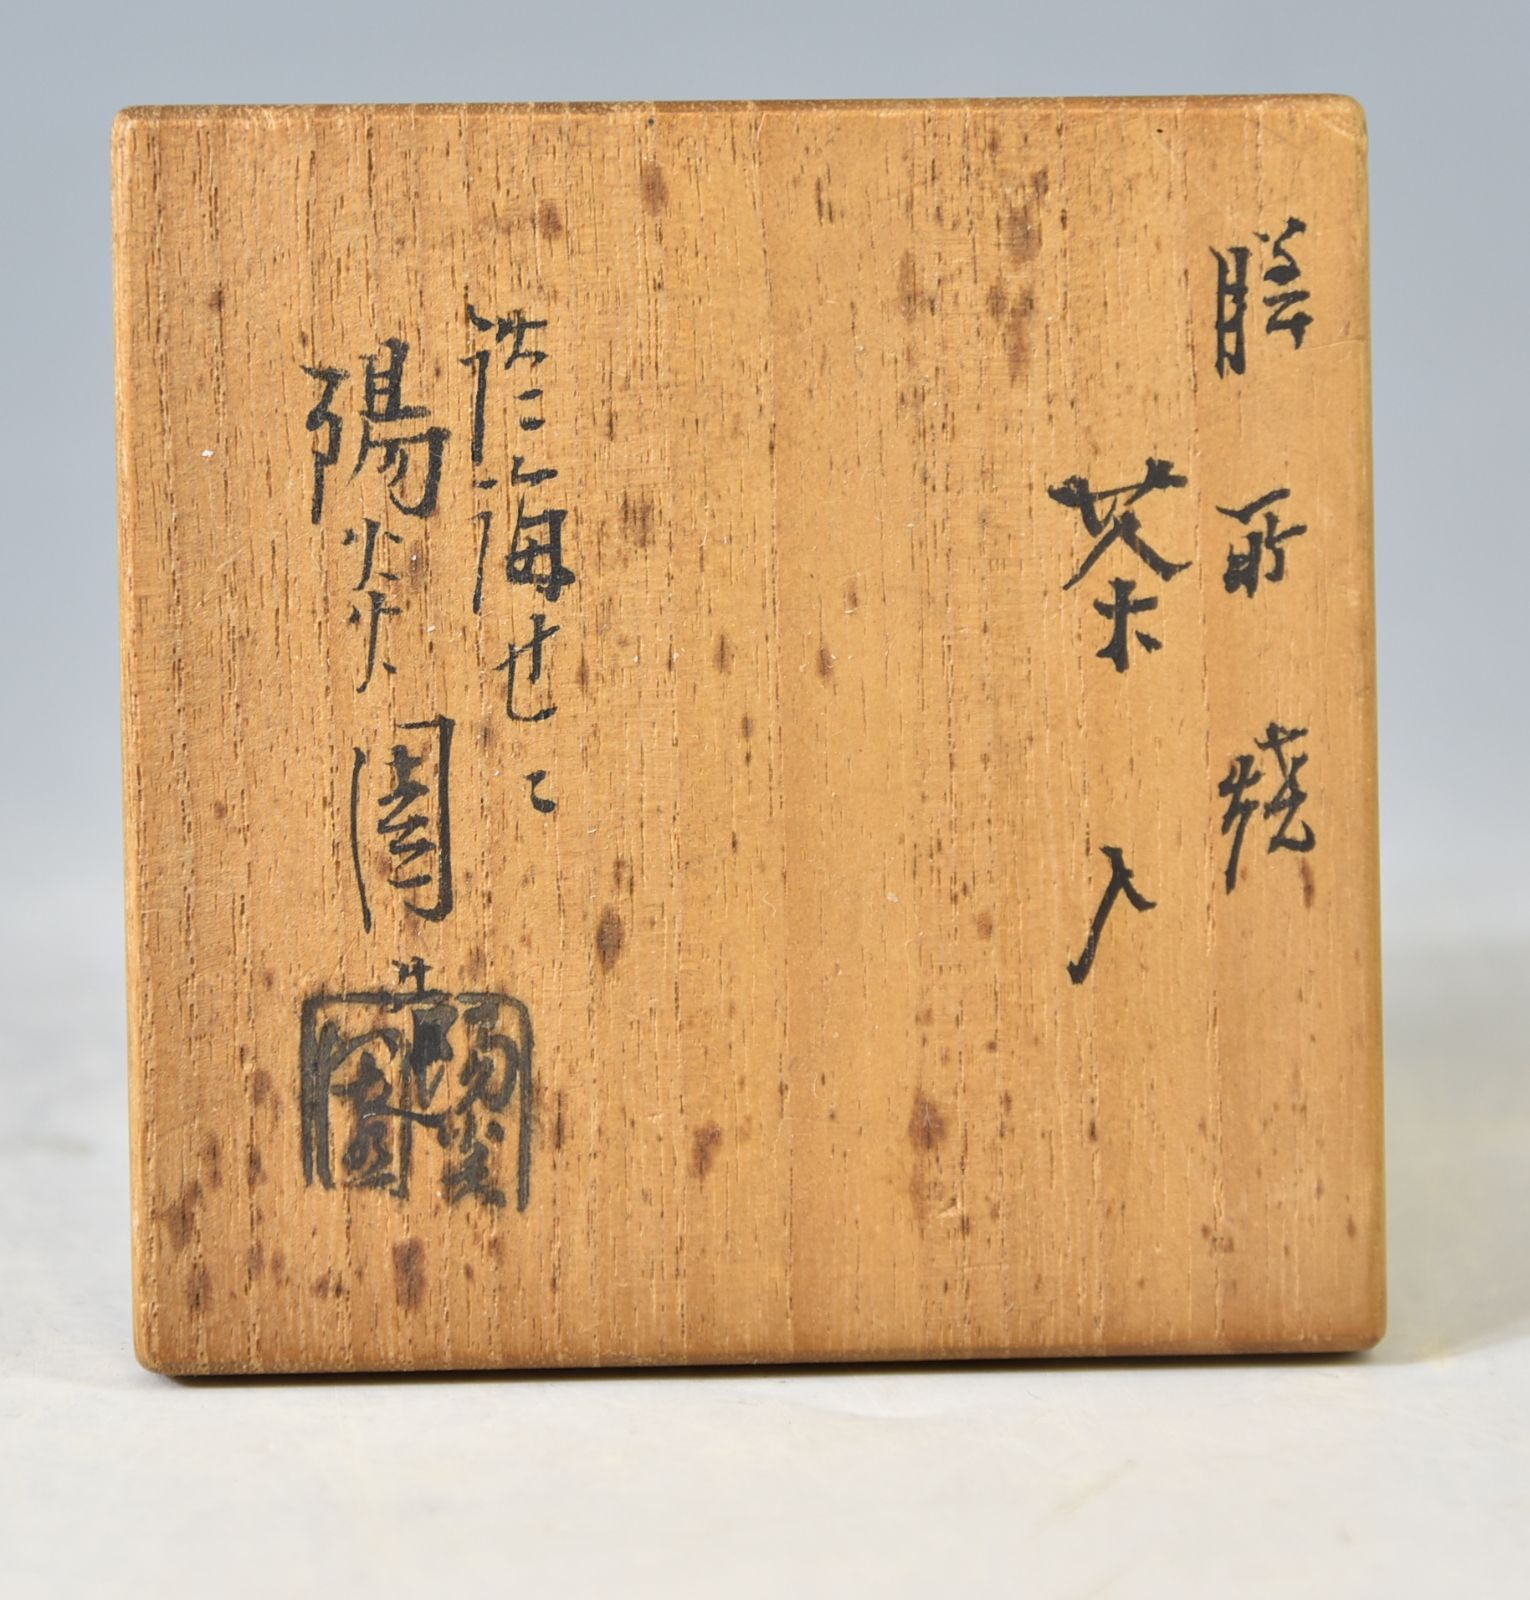 膳所焼
茶入
陽炎園
陽炎園